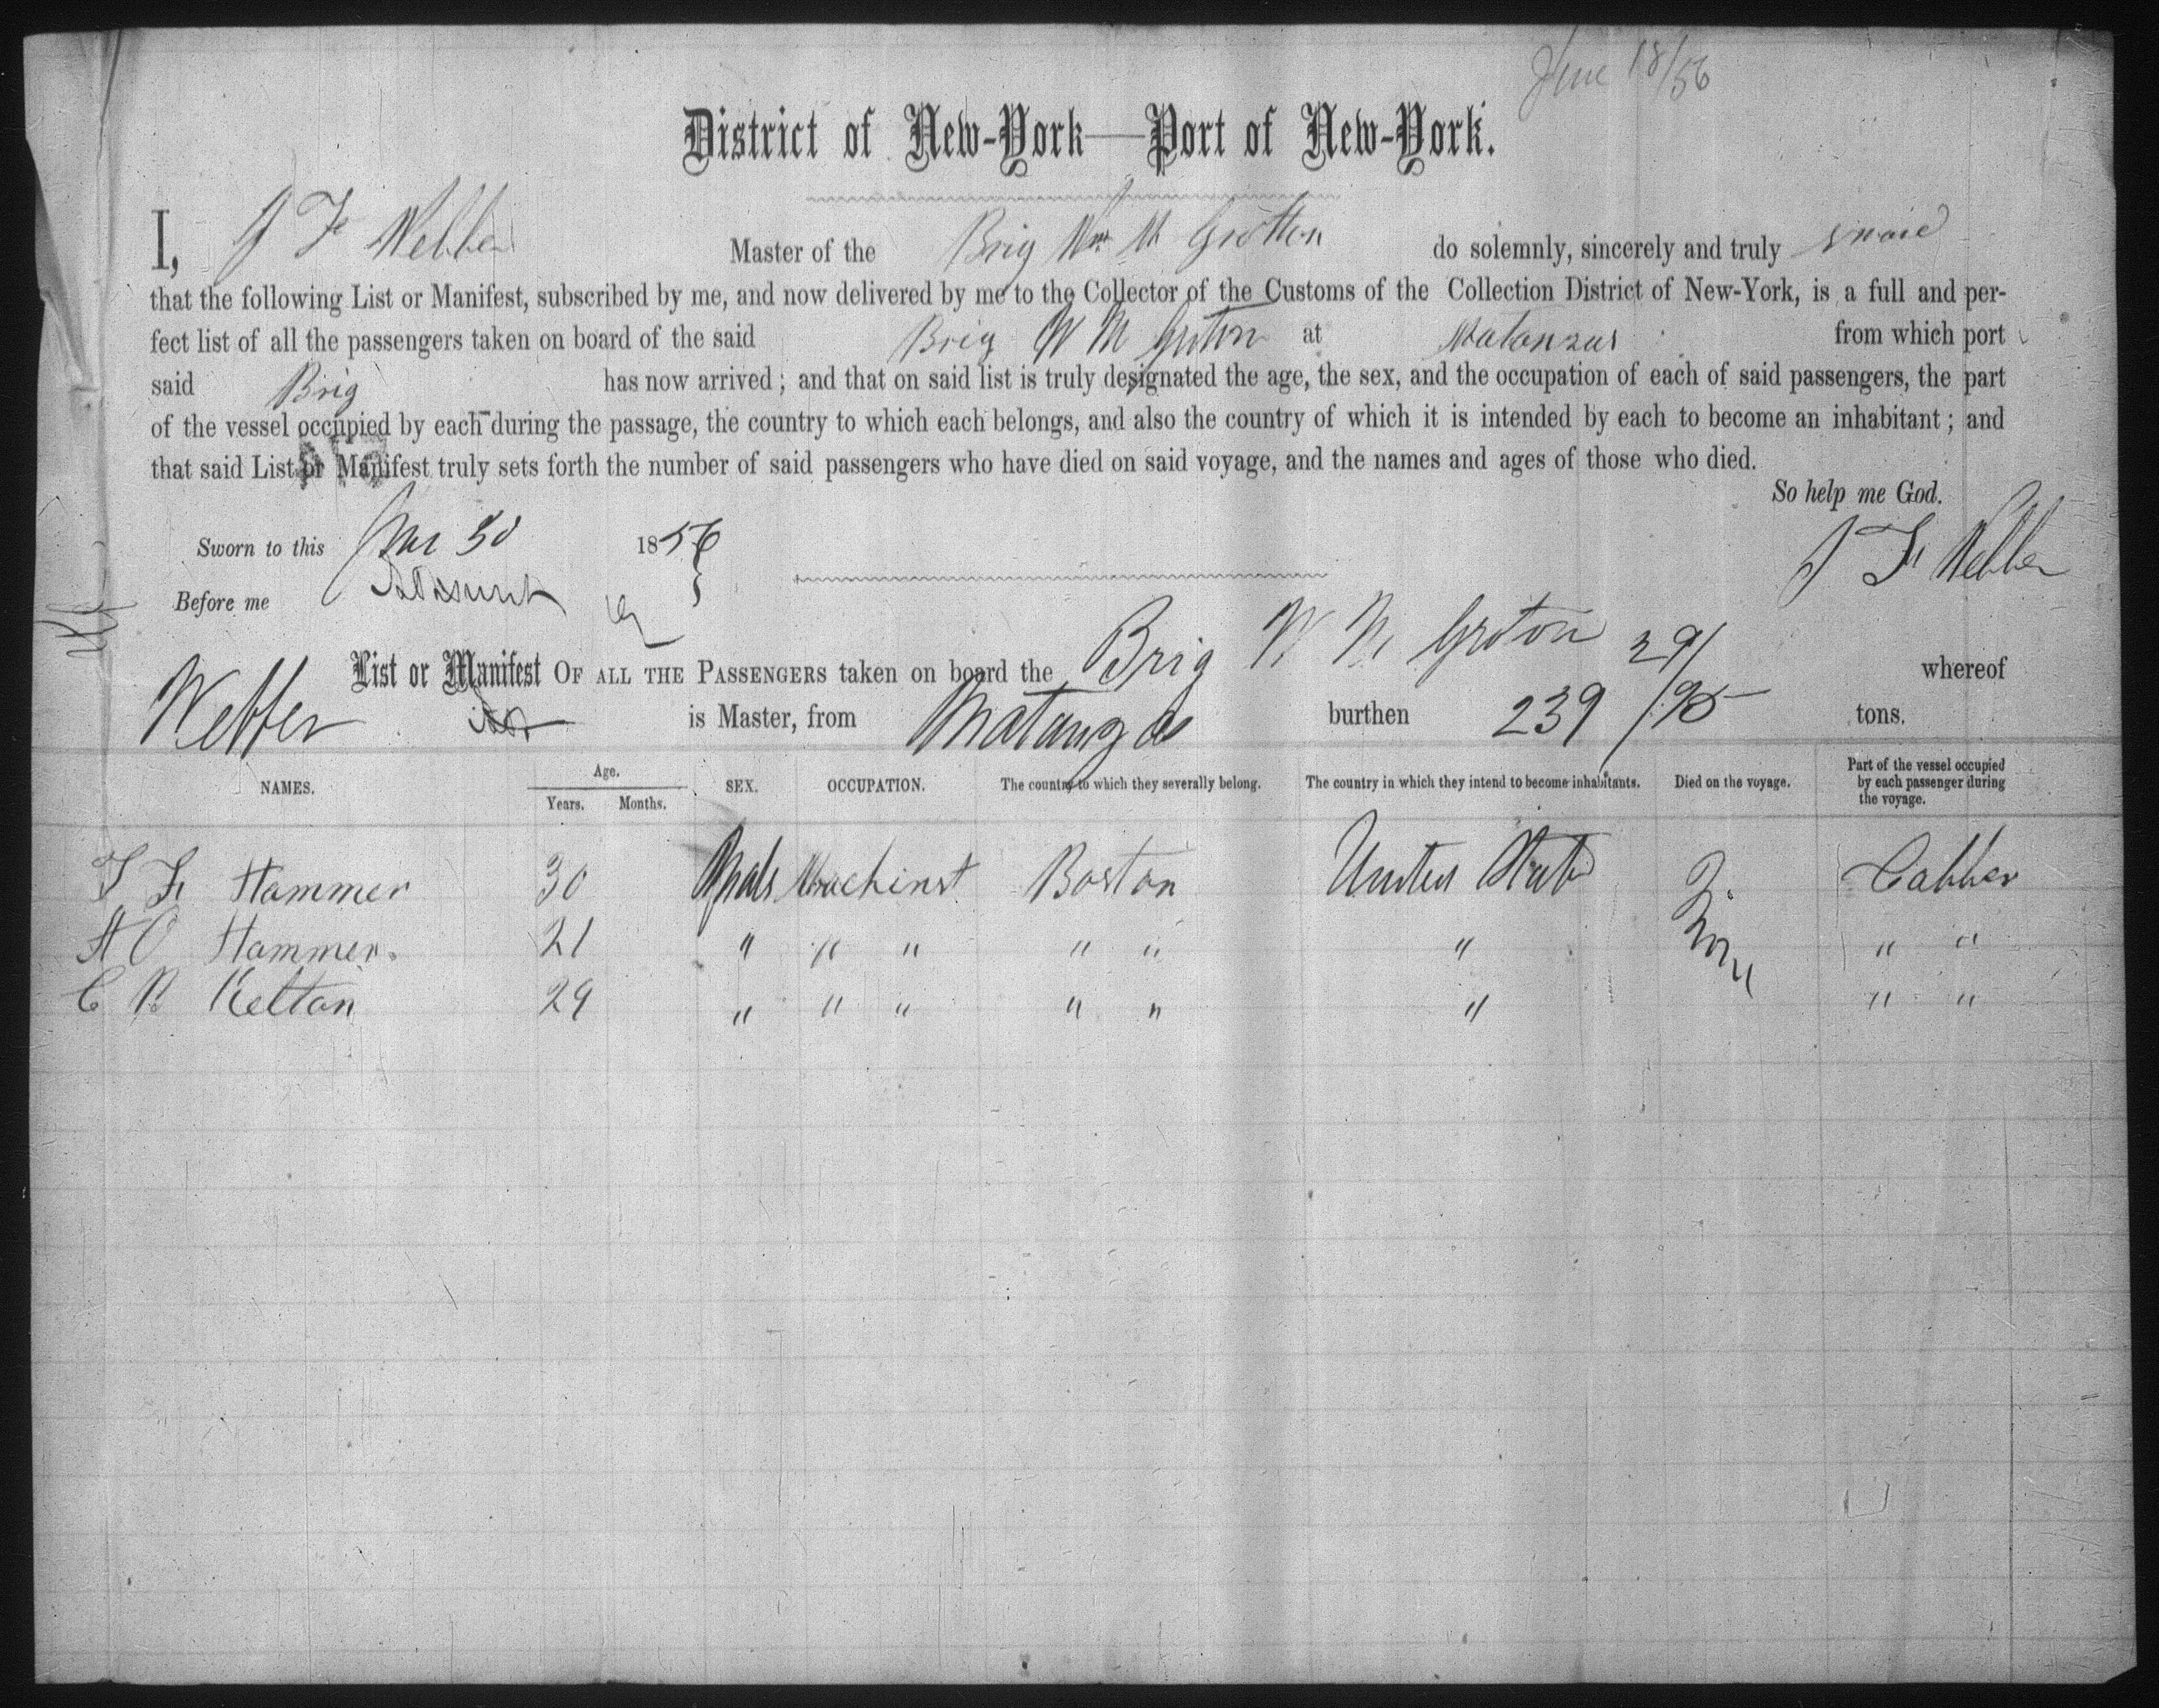 June 18/56
District of New-York—Port of New-York.
I, J F Webber Master of the Brig Wm M Grotton do solemnly, sincerely and truly
that the following List or Manifest, subscribed by me, and now delivered by me to the Collector of the Customs of the Collection District of New-York, is a full and per-
fect list of all the passengers taken on board of the said Brig W M Groton at Matanzas from which port
said Brig has now arrived; and that on said list is truly designated the age, the sex, and the occupation of each of said passengers, the part
of the vessel occupied by each during the passage, the country to which each belongs, and also the country of which it is intended by each to become an inhabitant; and
that said List or Manifest truly sets forth the number of said passengers who have died on said voyage, and the names and ages of those who died.
So help me God.
Sworn to this 1856 J F Webber
Before me
List or Manifest OF ALL THE PASSENGERS taken on board the Brig W M Groton whereof
Webber is Master, from Matanzas burthen 239 29/95 tons.
NAMES. Age. Years. Months. SEX. OCCUPATION. The country to which they severally belong. The country in which they intend to become inhabitants. Died on the voyage. Part of the vessel occupied by each passenger during the voyage.
J F Hammer 30 Male Machinst Boston United States
H O Hammer. 21 " " " " " " " "
C R Kelton 29 " " " " " " " "